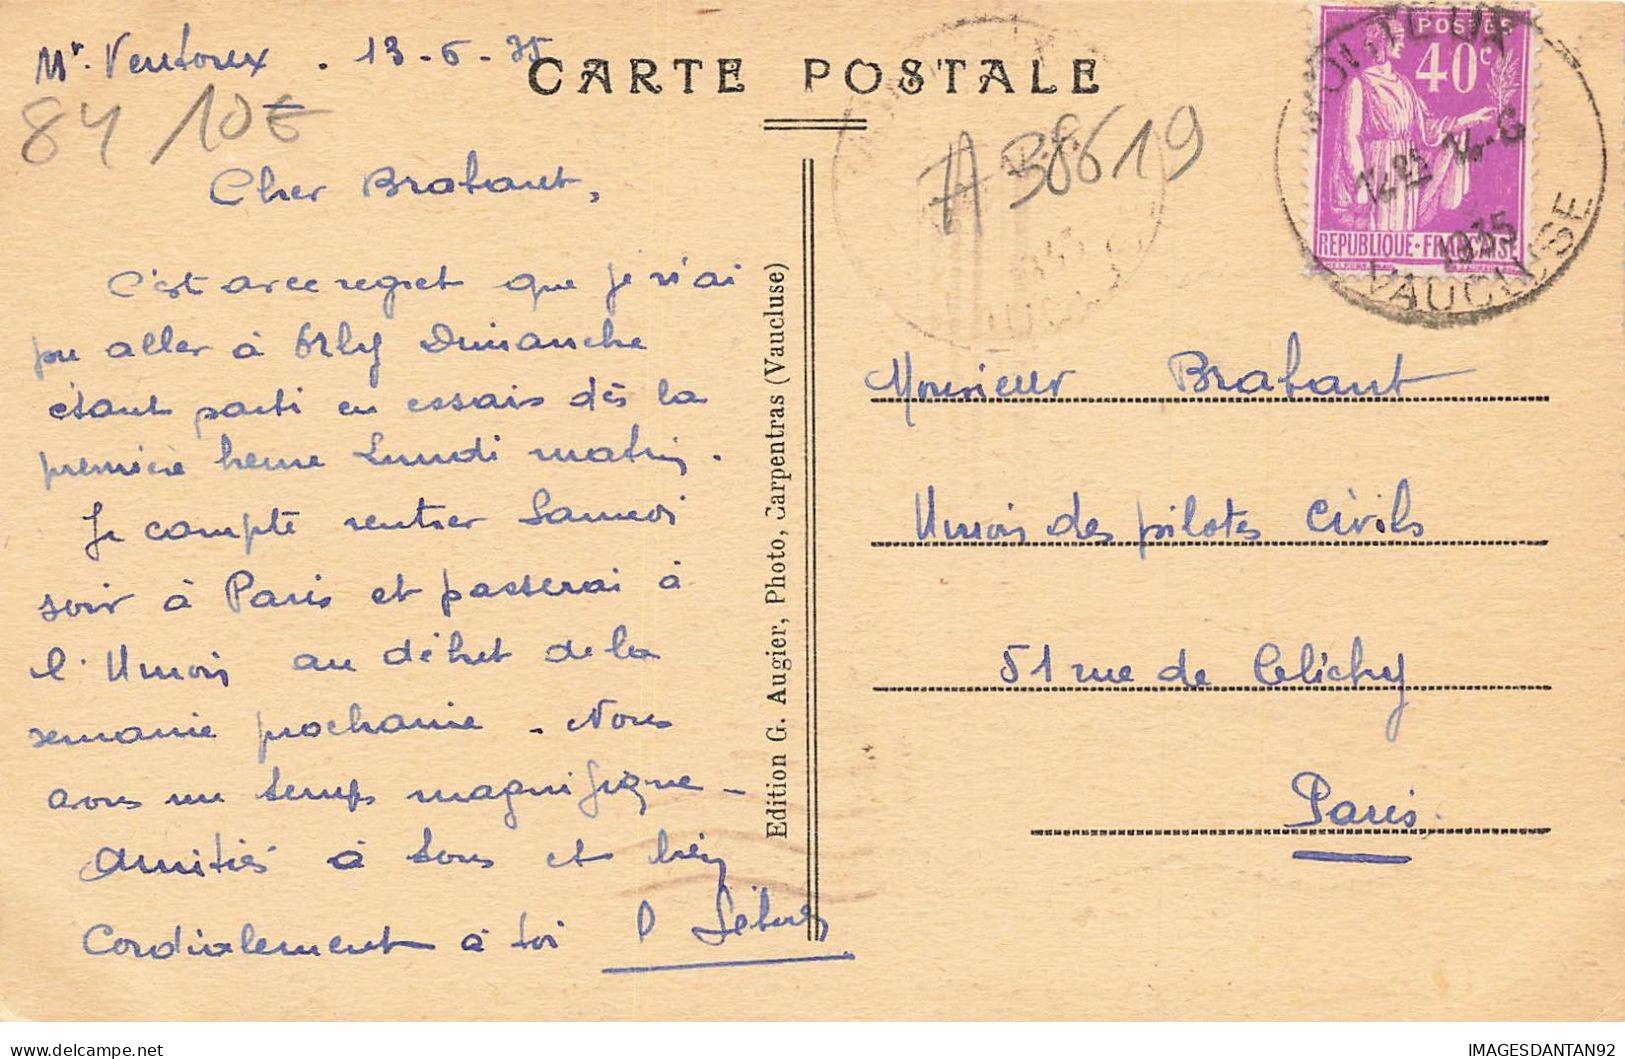 Mt. Ventoux . 13 - 6 - 35
CARTE POSTALE
84 10€
A38619
POSTES
40c
REPUBLIQUE·FRANÇAISE
1935
VAUCLUSE
Cher Brabant,
C'est avec regret que je n'ai
pu aller à Orly Dimanche
étant parti en essais dès la
première heure Lundi matin.
Je compte rentrer Samedi
soir à Paris et passerai à
l'Union au début de la
semaine prochaine - Nous
avons un temps magnifique -
Amitiés à tous et bien
Cordialement à toi
Edition G. Augier, Photo, Carpentras (Vaucluse)
Monsieur Brabant
Union des pilotes Civils
51 rue de Clichy
Paris.
IMAGESDANTAN92
delcampe.net